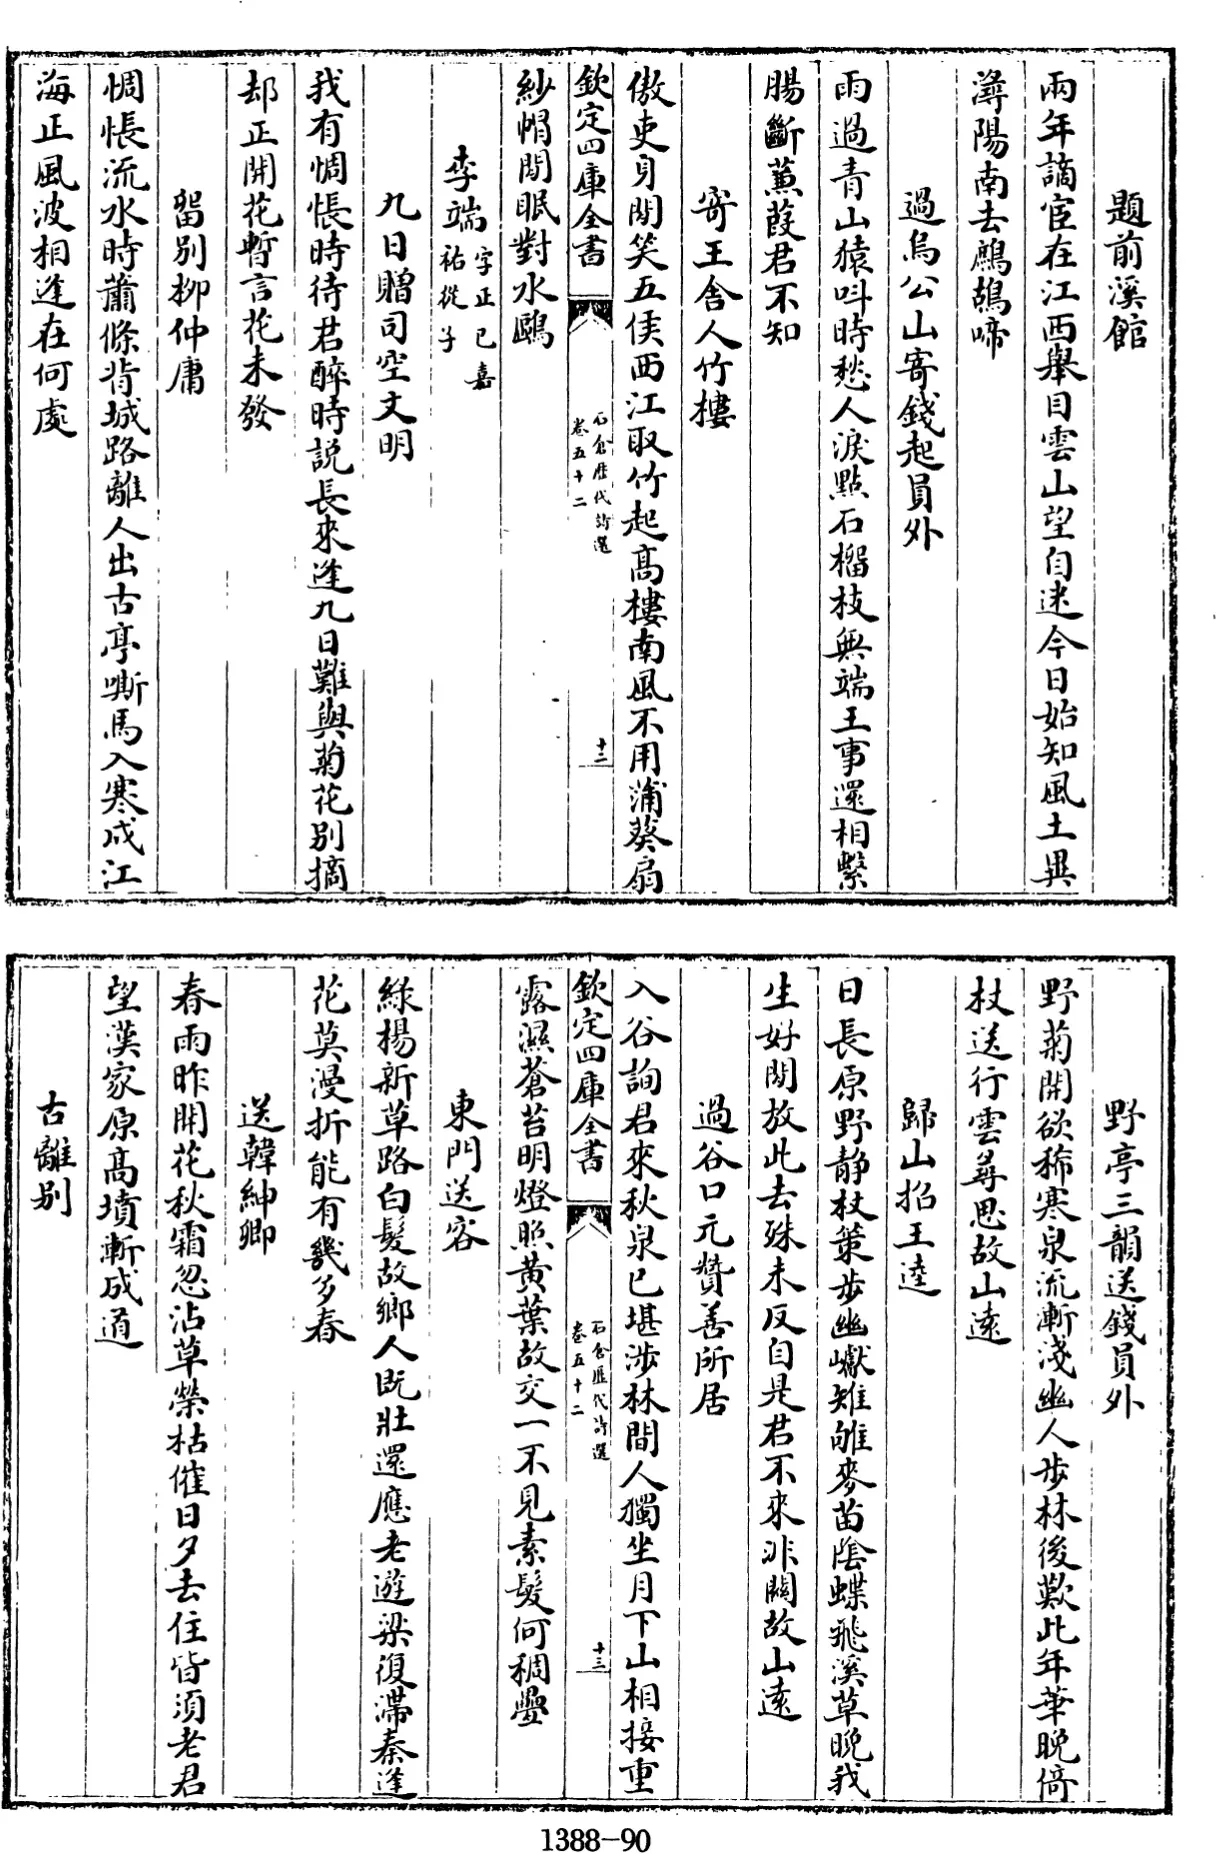 題前溪館
兩年謫宦在江西舉目雲山望自迷今日始知風土異
潯陽南去鷓鴣啼
過烏公山寄錢起員外
雨過青山猿叫時愁人淚點石榴枝無端王事還相繫
腸斷蒹葭君不知
寄王舍人竹樓
傲吏身閒笑五侯西江取竹起高樓南風不用蒲葵扇
欽定四庫全書
石倉歷代詩選
卷五十二
十二
紗㡌閒眠對水鷗
李端字正己嘉
祐從子
九日贈司空文明
我有惆悵時待君醉時説長來逢九日難與菊花别摘
却正開花暫言花未發
留别柳仲庸
惆悵流水時蕭條背城路離人出古亭嘶馬入寒戍江
海正風波相逢在何處
野亭三韻送錢員外
野菊開欲稀寒泉流漸淺幽人步林後歎此年華晚倚
杖送行雲尋思故山遠
歸山招王逵
日長原野静杖策步幽巘雉雊麥苗陰蝶飛溪草晚我
生好閒放此去殊未反自是君不來非關故山遠
過谷口元贊善所居
入谷詢君來秋泉已堪涉林間人獨坐月下山相接重
欽定四庫全書
石倉歷代詩選
卷五十二
十三
露濕蒼苔明燈照黄葉故交一不見素髮何稠疊
東門送客
綠楊新草路白髮故鄉人既壯還應老遊梁復滯秦逢
花莫漫折能有幾多春
送韓紳卿
春雨昨開花秋霜忽沾草榮枯催日夕去住皆須老君
望漢家原高墳漸成道
古離别
1388-90